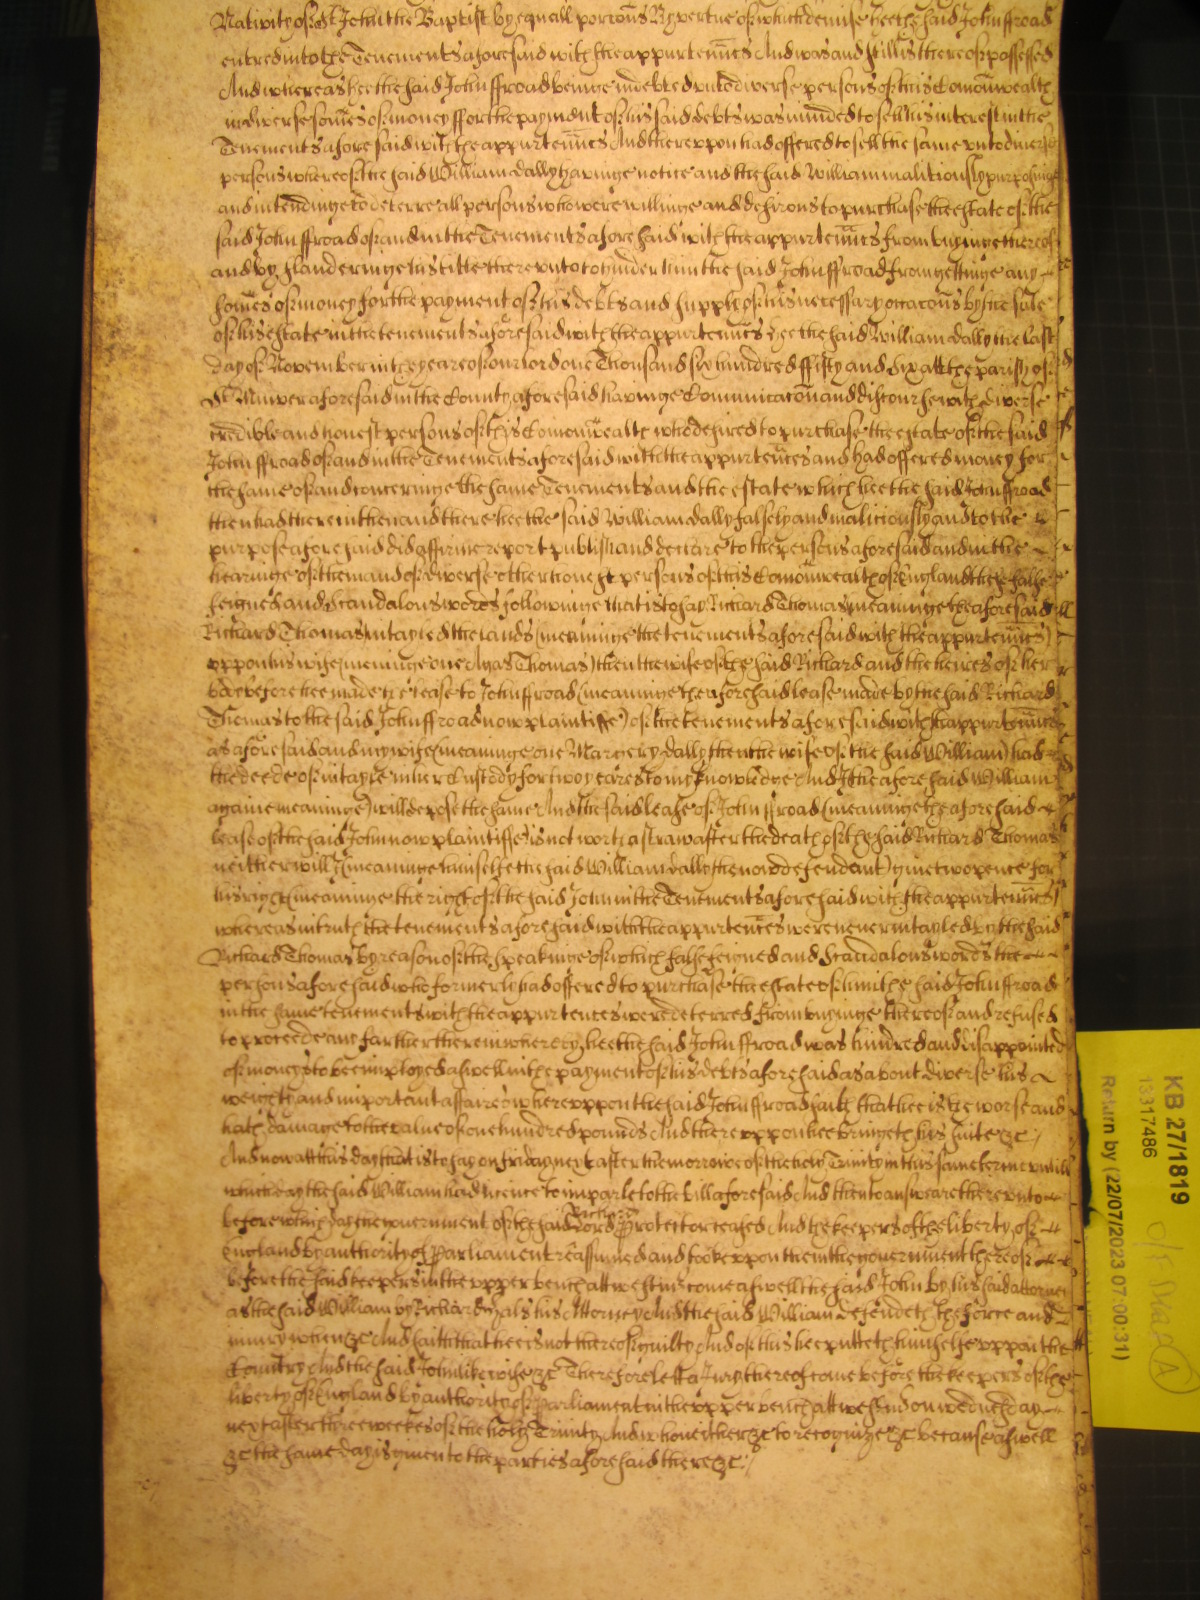 Nativity of St John the Baptist by equall porcons By vertue of which demise hee the said John ffroad
entred into the Tenements aforesaid with the appurtenncs And was and still is thereof possessed
And whereas hee the said John ffroad beinge indebted unto diverse persons of this Comonwealth
in diverse somes of money ffor the payment of his said debts was minded to sell his interest in the
Tenements aforesaid with the appurtenncs And thereuppon had offered to sell the same unto diverse
persons whereof the said William Dally haveinge notice and the said William malitiously purposinge
and intendinge to deterre all persons who were willinge and desirous to purchase the estate of the
said John ffroad of and in the Tenements aforesaid with the appurtenncs from buyinge thereof
and by slanderinge his title thereunto to hinder him the said John ffroad from gettinge any
somes of money for the payment of his debts and supply of his necessary occacons by the sale
of his estate in the tenements aforesaid with the appurtenncs hee the said William Dally the last
day of November in the yeare of our lord one Thousand six hundred ffifty and six att the parish of
St Minver aforesaid in the County aforesaid havinge Communicacon and discourse with diverse
credible and honest persons of this Comonwealth who desired to purchase the estate of the said
John ffroad of and in the Tenements aforesaid with the appurtences and had offered money for
the same of and concerninge the same Tenements and the estate which hee the said John ffroad
then had therein then and there hee the said William Dally falsely and maliciously and to the
purpose aforesaid did affirme report publish and declare to the persons aforesaid and in the
hearinge of them and of diverse other honest persons of this Comonwealth of England these false
feigned and scandalous words followinge that is to say Richard Thomas (meaninge the aforesaid
Richard Thomas) intayled the lands (meaninge the tenements aforesaid with the appurtenncs)
uppon his wife (meninge one Thomas) then the wife of the said Richard and the heires of her
before hee made the lease to John ffroad (meaninge the aforesaid lease made by the said Richard
Thomas to the said John ffroad now plaintiffe) of the tenements aforesaid with thappurtenncs
as aforesaid and my wife (meaninge one Margery Dally then the wife of the said William) had
the deede of intayle in her Custody for two yeares to my knowledge And I (the aforesaid William
againe meaninge) will depose the same And the said lease of John ffroad (meaninge the aforesaid
lease of the said John now plaintiffe) is not worth a straw after the death of the said Richard Thomas
neither will I (meaninge himselfe the said William Dally the now defendant) give two pence for
his right (meaninge the right of the said John in the Tenements aforesaid with the appurtenncs)
whereas in truth the tenements aforesaid with the appurtenncs were never intayled by the said
Richard Thomas by reason of the speakinge of which false feigned and scandalous words the
persons aforesaid who formerly had offered to purchase the estate of him the said John ffroad
in the same tenements with the appurtences were deterred from buyinge thereof and refused
to proceede any farther therein whereby hee the said John ffroad was hindred and disappointed
of moneys to bee imployed aswell in the payment of his debts aforesaid as about diverse his
weighty and important affaires whereuppon the said John ffroad saith that hee is the worse and
hath damage to the value of one hundred pounds And thereuppon hee bringeth his suite &c
And now att this day that is to say on friday next after the morrowe of the holy Trinity in this same terme untill
which day the said William had licence to imparle to the bill aforesaid And then to answeare thereunto
before which day the government of the said Richard Lord Protector ceased And the keepers of the liberty of
England by authority of Parliament reassumed and tooke uppon them the government thereof
before the said keepers in the upper bench att westm come aswell the said John by his said attorney
as the said William by Richard his Attorney And the said William defendeth the force and
iniury when &c And saith that hee is not thereof guilty And of this hee putteth himselfe uppon the
Country And the said John likewise &c Therefore lett a Jury thereof come before the keepers of the
liberty of England by authority of Parliament in the upper bench att westm on wednesday
next after three weekes of the holy Trinity And who neither &c to recognize &c because aswell
&c the same day is given to the parties aforesaid there &c
KB 27/1819
13317486
Return by (22/07/2023 07:00:31)
A